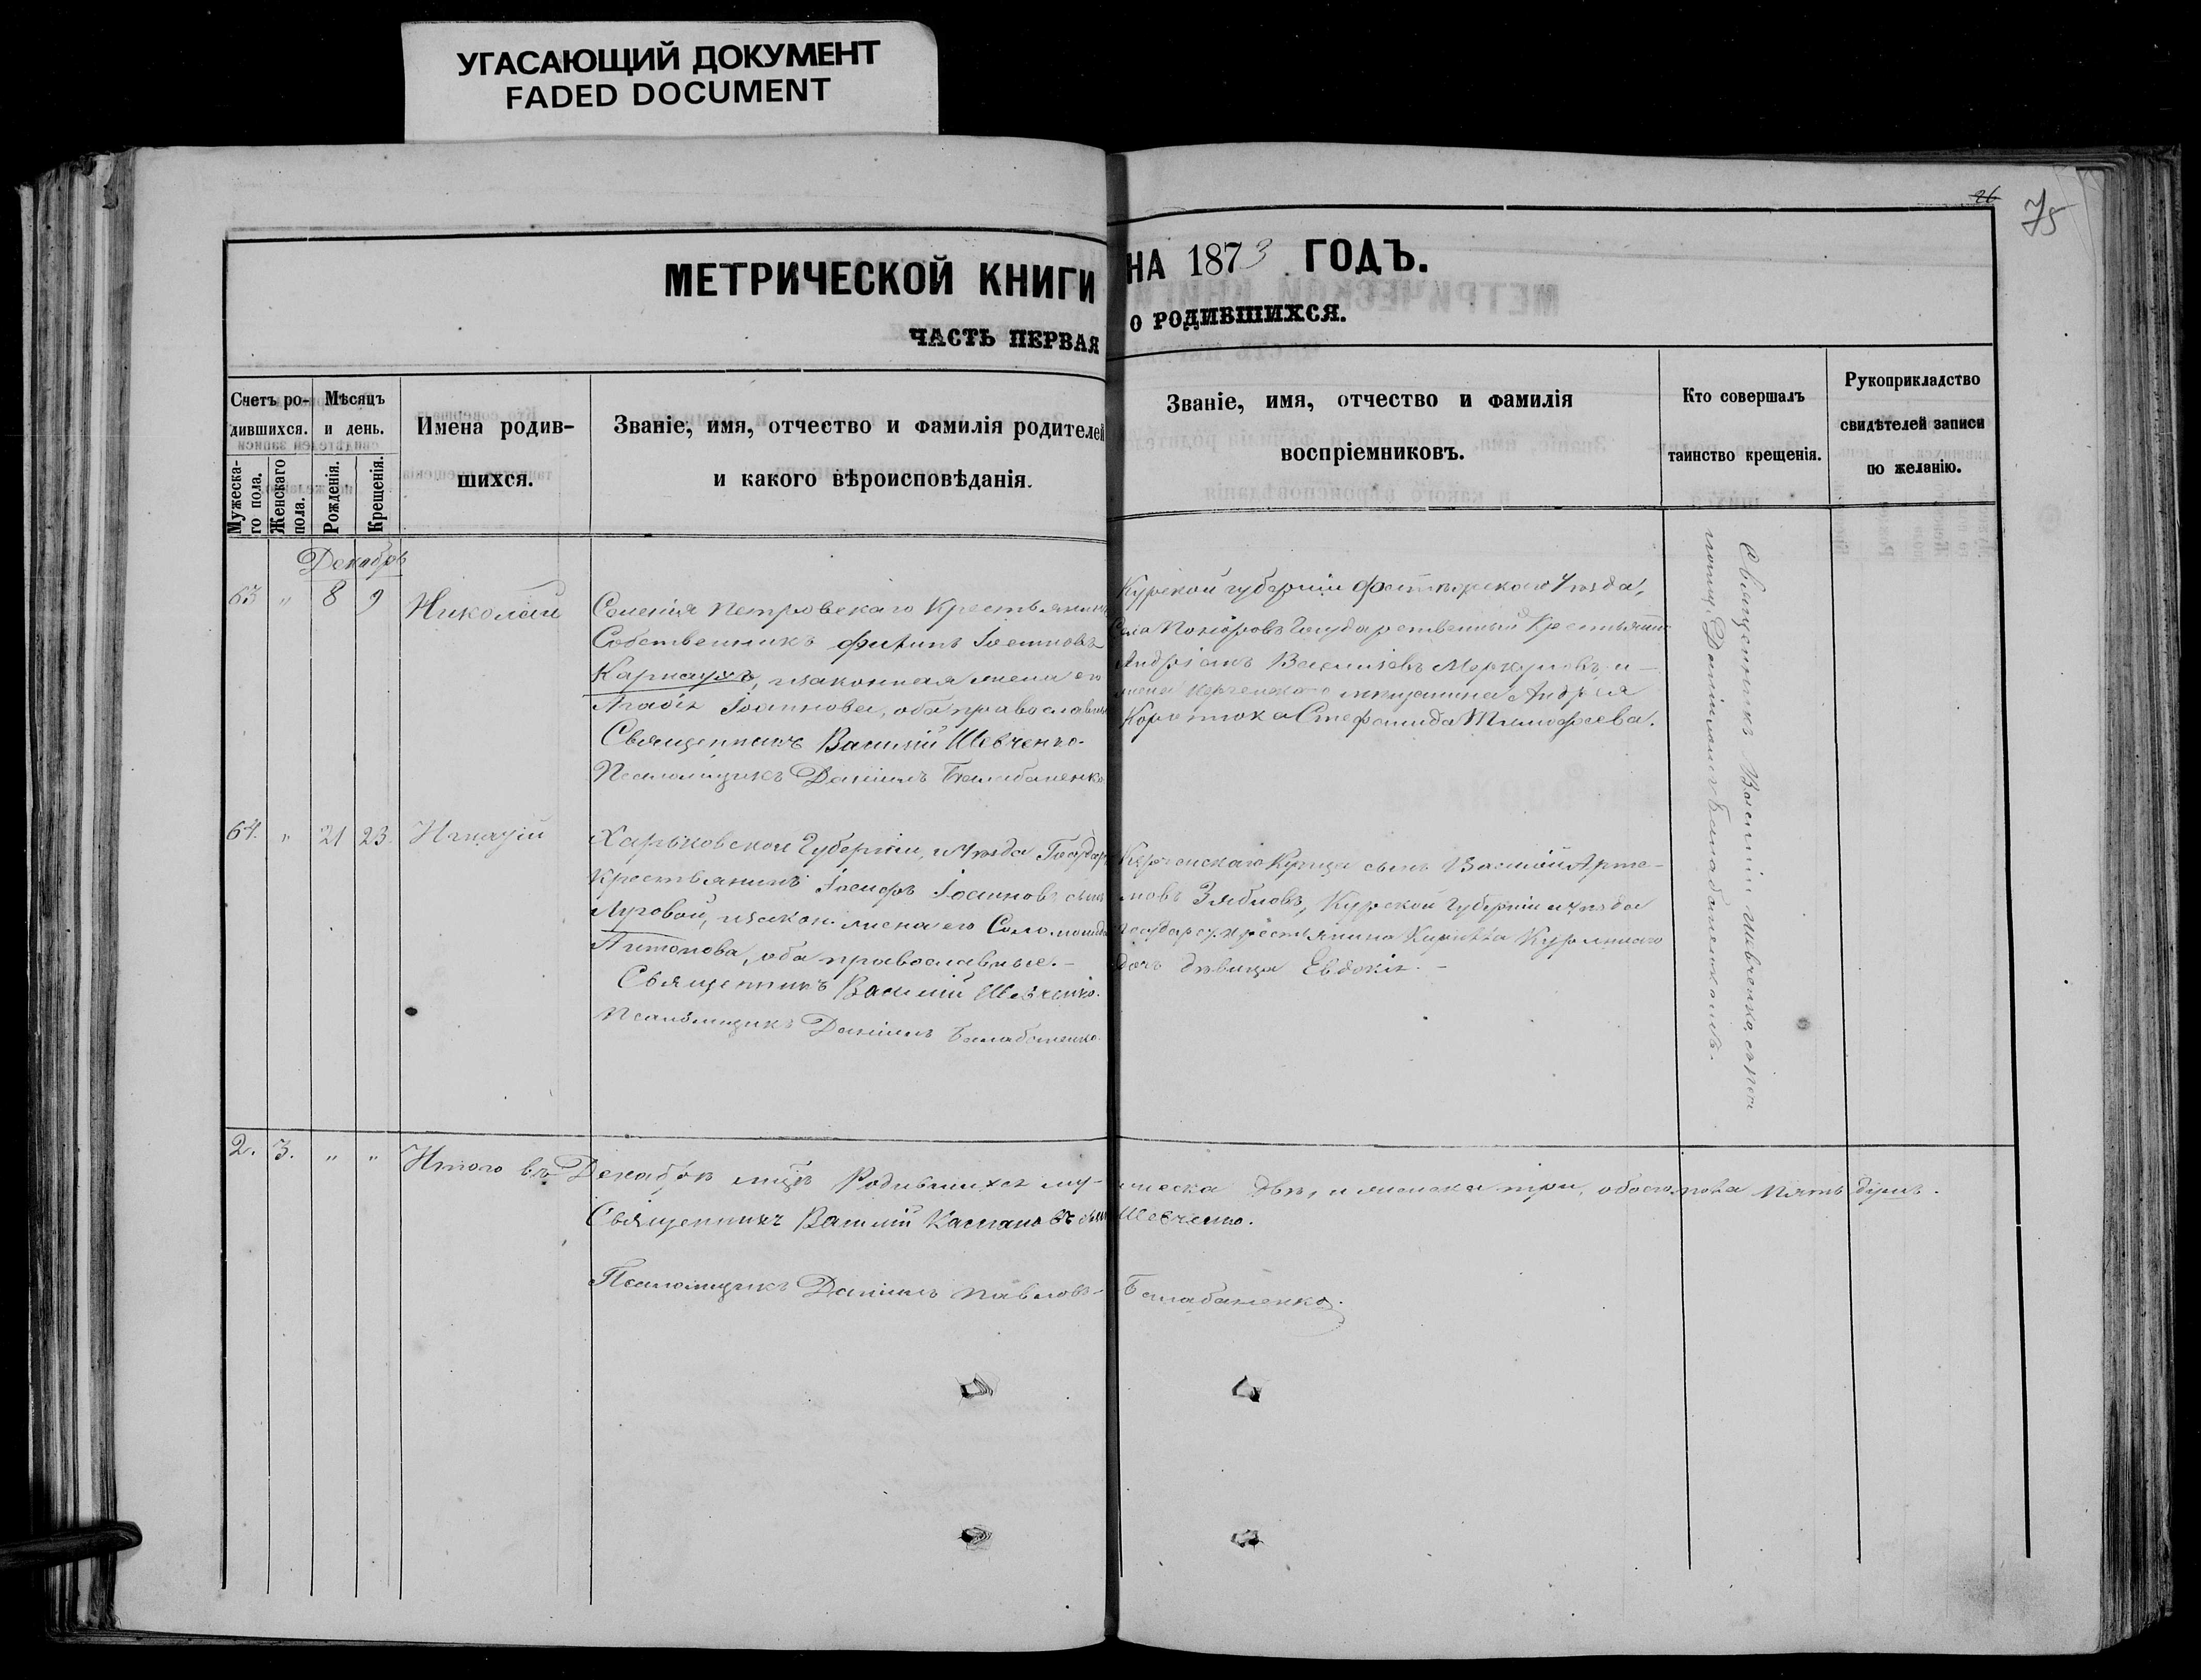 УГАСАЮЩИЙ ДОКУМЕНТ
FADED DOCUMENT
26
75
МЕТРИЧЕСКОЙ КНИГИ НА 1873 ГОДЪ.
ЧАСТЬ ПЕРВАЯ О РОДИВШИХСЯ.
Счетъ родившихся.
Мужескаго пола.
Женскаго пола.
Мѣсяцъ и день.
Рожденія.
Крещенія.
Имена родившихся.
Званіе, имя, отчество и фамилія родителей
и какого вѣроисповѣданія.
Званіе, имя, отчество и фамилія
воспріемниковъ.
Кто совершалъ
таинство крещенія.
Рукоприкладство
свидѣтелей записи
по желанію.
Декабрь
63 " 8 9 Николай
Селенія Петровскаго Крестьянинъ
Собственникъ Филипъ Іоанновъ
Карнаухъ, и законная жена его
Агафія Іоаннова, оба православные
Священникъ Василій Шевченко.
Псаломщикъ Даніилъ Балабаненко
Курской губерніи Фатѣжскаго Уѣзда,
Села Государственный Крестьянинъ
Андріанъ Василіевъ Меркуловъ, и
жена Керченскаго мѣщанина Андрея
Коротюка Стефанида Тимофеева.
64. " 21 23. Игнатій
Харьковской Губерніи, и Уѣзда Государ
Крестьянинъ Іосифъ Іоанновъ сынъ
Луговой, и закон. жена его Соломонида
Антонова, оба православные.—
Священникъ Василій Шевченко.
Псаломщикъ Даніилъ Балабаненко.
Керченскаго Купца сынъ Василій Арте-
мовъ Зябловъ, Курской Губерніи и уѣзда
государс. крестьянина
дочь дѣвица Евдокія.—
Священникъ Василій Шевченко, съ Псал
ломщ. Даніиломъ Балабаненкомъ.
2. 3. " " Итого въ Декабрѣ мцѣ Родившихся му- жеска два, и женска три, обоего пола пять душъ.
Священникъ Василій сынъ Шевченко.
Псаломщикъ Даніилъ Павловъ Балабаненко.